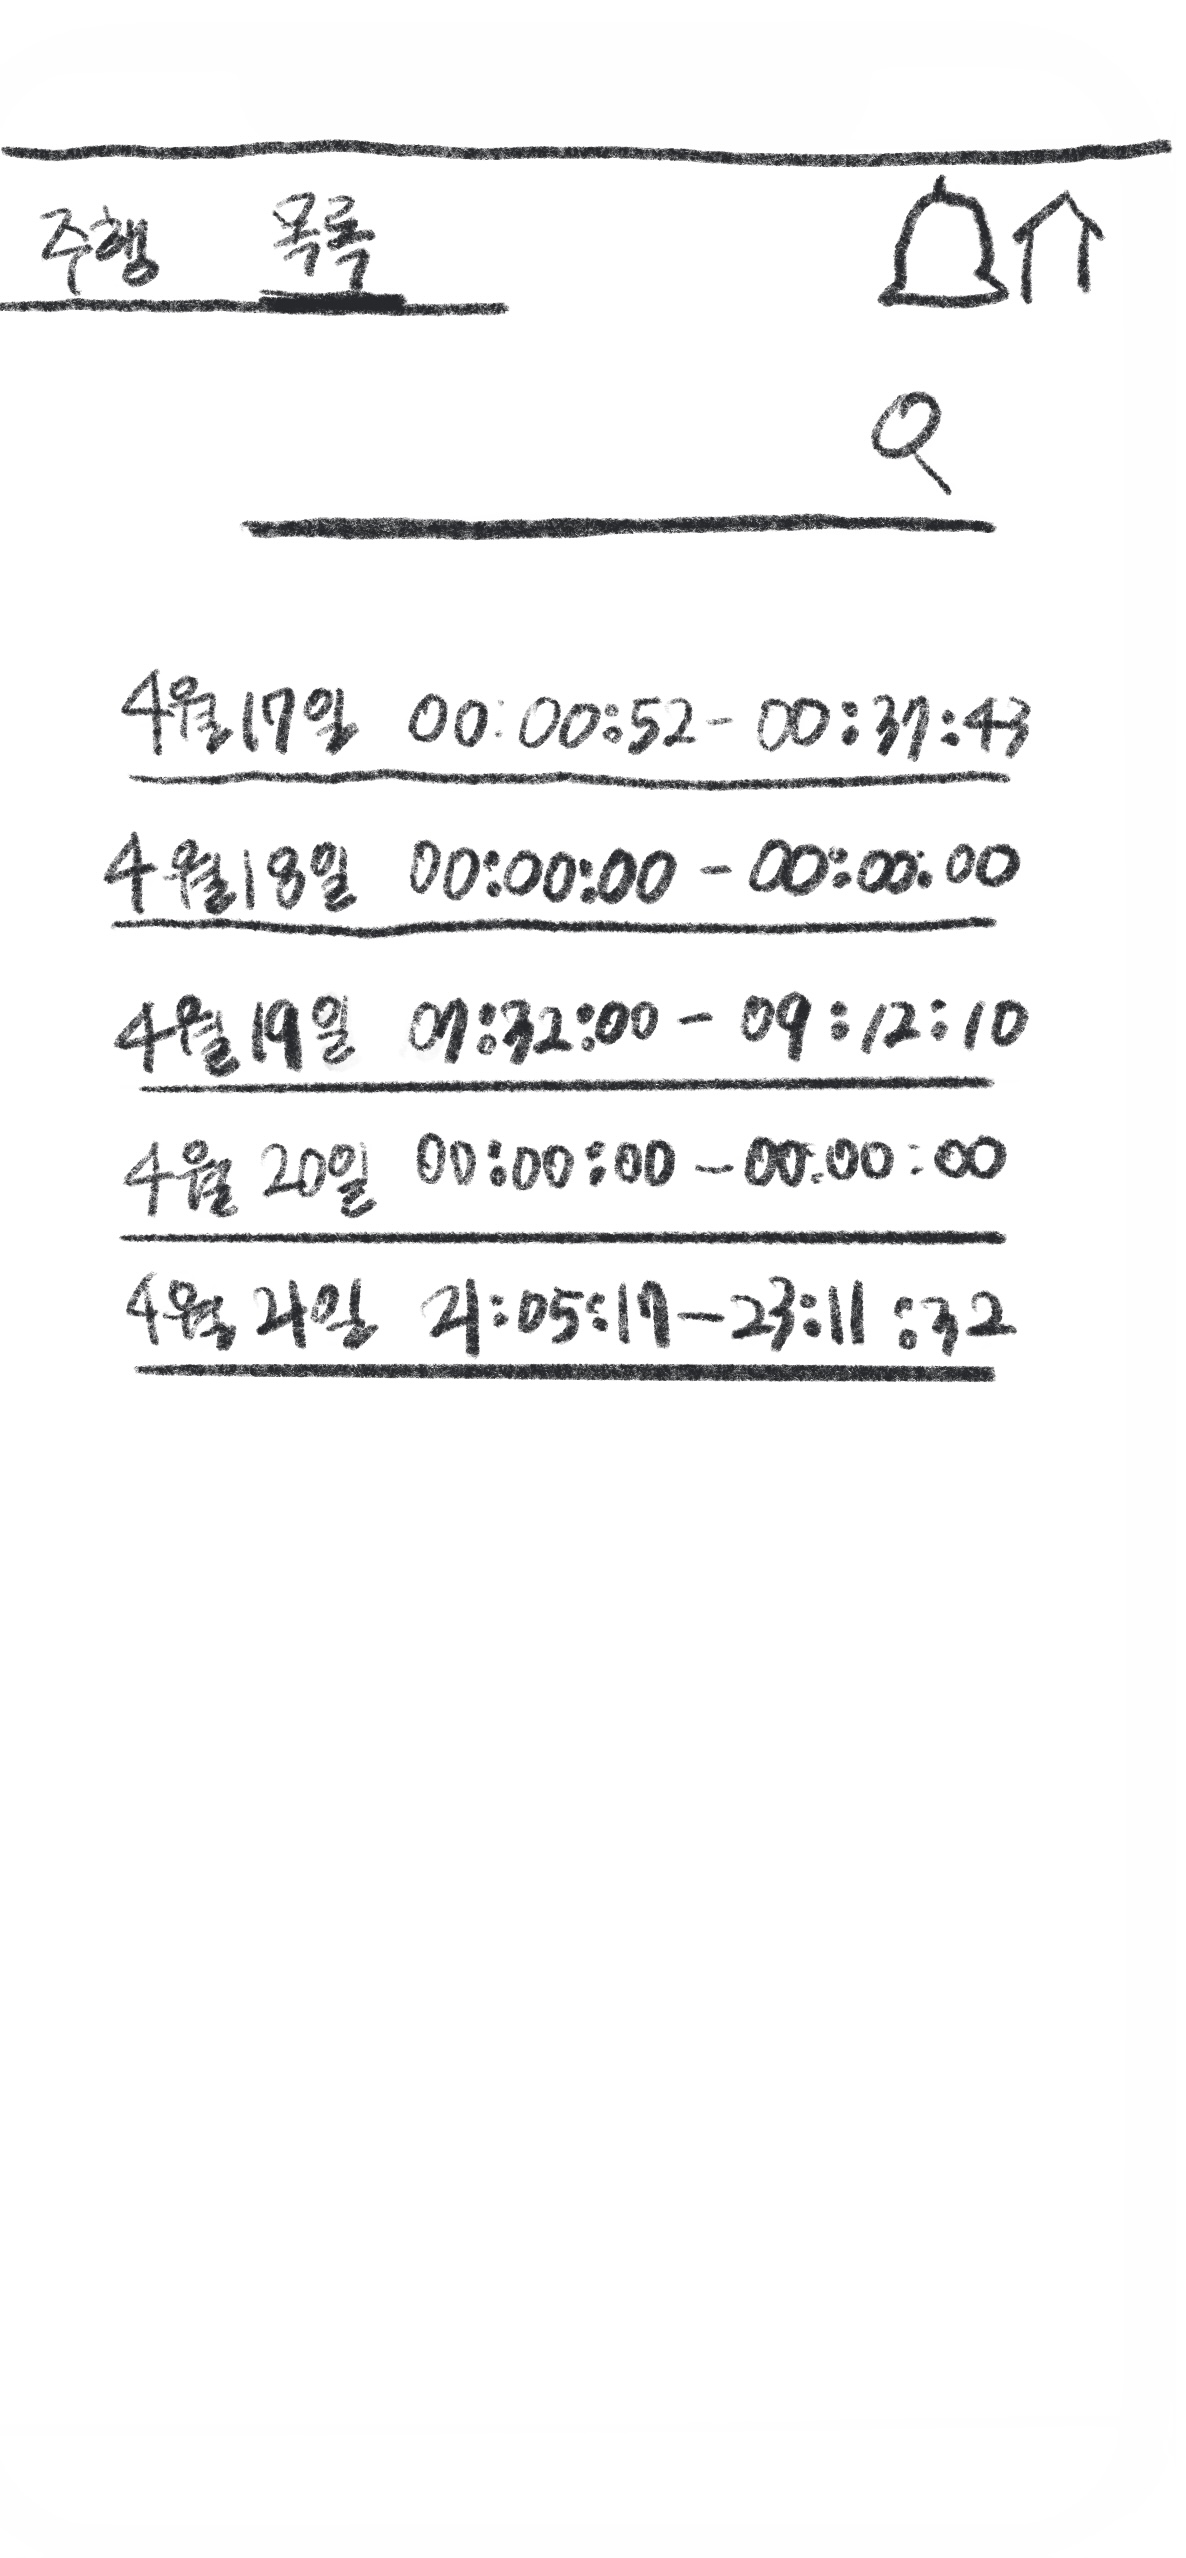 주행 목록
4월17일 00:00:52- 00:37:43
4월18일 00:00:00 - 00:00:00
4월19일 07:32:00 - 09:12:10
4월 20일 00:00:00 - 00:00:00
4월 21일 21:05:17-23:11:32